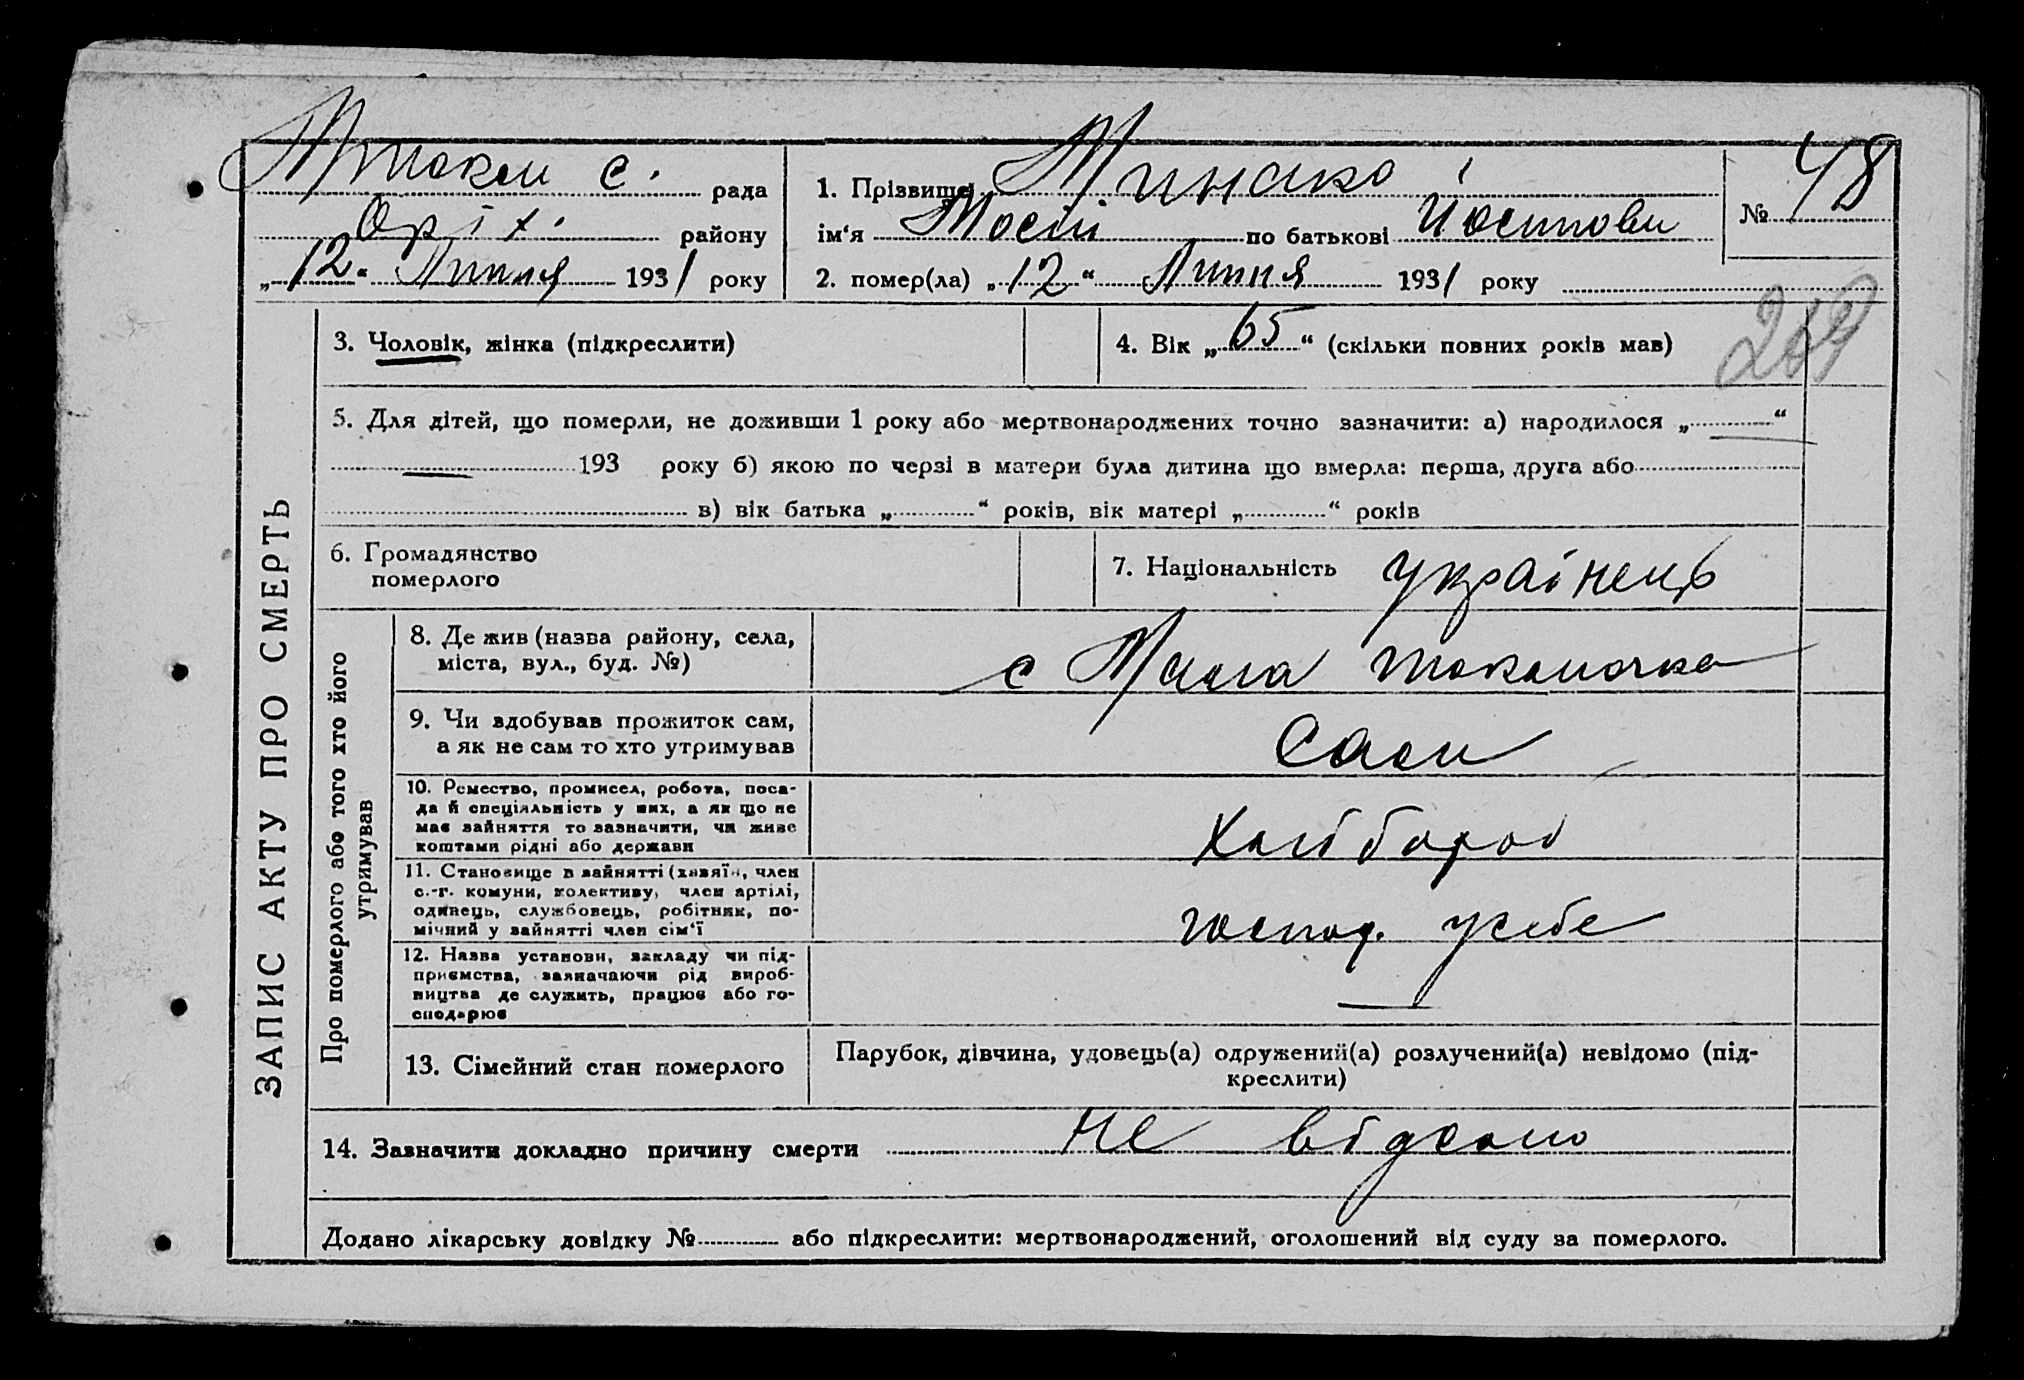 М-Токм с. рада
Оріх. району
„12“ Липня 1931 року
1. Прізвище Минако
ім‘я Мосій по батькові Йосипови
№ 48
2. помер(ла) „12“ Липня 1931 року
269
3. Чоловік, жінка (підкреслити)
4. Вік „65“ (скільки повних років мав)
5. Для дітей, що померли, не доживши 1 року або мертвонароджених точно зазначити: а) народилося „ “
— 193 року б) якою по черзі в матери була дитина що вмерла: перша, друга або
в) вік батька „ “ років, вік матері „ “ років
6. Громадянство
померлого
7. Національність українець
ЗАПИС АКТУ ПРО СМЕРТЬ
Про померлого або того хто його
утримував
8. Де жив (назва району, села,
міста, вул., буд. №)
с Мала токмачка
9. Чи вдобував прожиток сам,
а як не сам то хто утримував
Сам
10. Ремество, промисел, робота, поса-
да й спеціяльність у них, а як що не
має зайняття то зазначити, чи живе
коштами рідні або держави
Хлібороб
11. Становище в зайнятті (хазяїн, член
с.-г. комуни, колективу, член артілі,
одинець, службовець, робітник, по-
мічний у зайнятті член сім‘ї
господ. у себе
12. Назва установи, закладу чи під-
приємства, зазначаючи рід вироб-
ництва де служить, працює або го-
сподарює
—
13. Сімейний стан померлого
Парубок, дівчина, удовець(а) одружений(а) розлучений(а) невідомо (під-
креслити)
14. Зазначити докладно причину смерти не відомо
Додано лікарську довідку № або підкреслити: мертвонароджений, оголошений від суду за померлого.